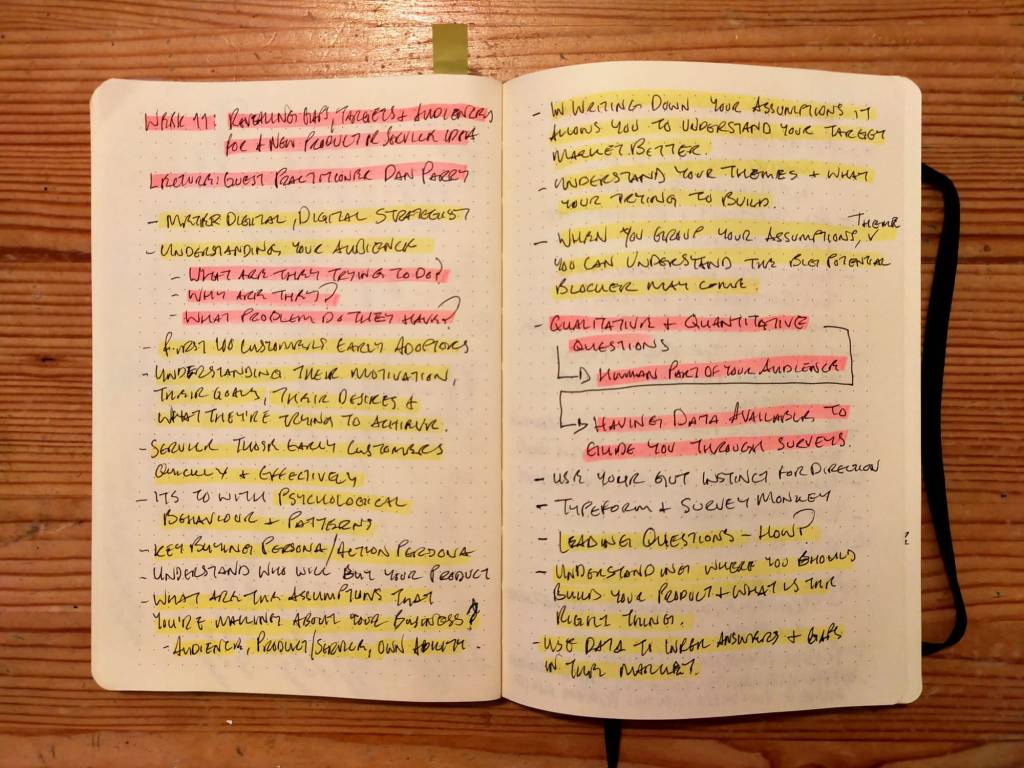 WEEK 11: REVEALING GAPS, TARGETS + AUDIENCES
FOR A NEW PRODUCT OR SERVICE IDEA
LECTURE: GUEST PRACTITIONER DAN PARRY
- DIGITAL, DIGITAL STRATEGIST
- UNDERSTANDING YOUR AUDIENCE
- WHAT ARE THEY TRYING TO DO?
- WHY ARE THEY?
- WHAT PROBLEM DO THEY HAVE?
- FIRST 100 CUSTOMERS EARLY ADOPTORS
- UNDERSTANDING THEIR MOTIVATION,
THEIR GOALS, THEIR DESIRES &
WHAT THEY'RE TRYING TO ACHIEVE.
- SERVICE THOSE EARLY CUSTOMERS
QUICKLY + EFFECTIVELY
- ITS TO WITH PSYCHOLOGICAL
BEHAVIOUR + PATTERNS
- KEY BUYING PERSONA/ACTION PERSONA
- UNDERSTAND WHO WILL BUY YOUR PRODUCT
- WHAT ARE THE ASSUMPTIONS THAT
YOU'RE MAKING ABOUT YOUR BUSINESS?
- AUDIENCE, PRODUCT/SERVICE, OWN ABILITY.
- IN WRITING DOWN YOUR ASSUMPTIONS IT
ALLOWS YOU TO UNDERSTAND YOUR TARGET
MARKET BETTER.
- UNDERSTAND YOUR THEMES + WHAT
YOUR TRYING TO BUILD.
THEME
- WHEN YOU GROUP YOUR ASSUMPTIONS,
YOU CAN UNDERSTAND THE BIG POTENTIAL
BLOCKER MAY COME.
- QUALITATIVE + QUANTITATIVE
QUESTIONS
HUMAN PART OF YOUR AUDIENCE
HAVING DATA AVAILABLE TO
GUIDE YOU THROUGH SURVEYS.
- USE YOUR GUT INSTINCT FOR DIRECTION
- TYPEFORM + SURVEY MONKEY
- LEADING QUESTIONS - HOW?
- UNDERSTANDING WHERE YOU SHOULD
BUILD YOUR PRODUCT + WHAT IS THE
RIGHT THING.
- USE DATA TO ANSWERS + GAPS
IN THE MARKET.